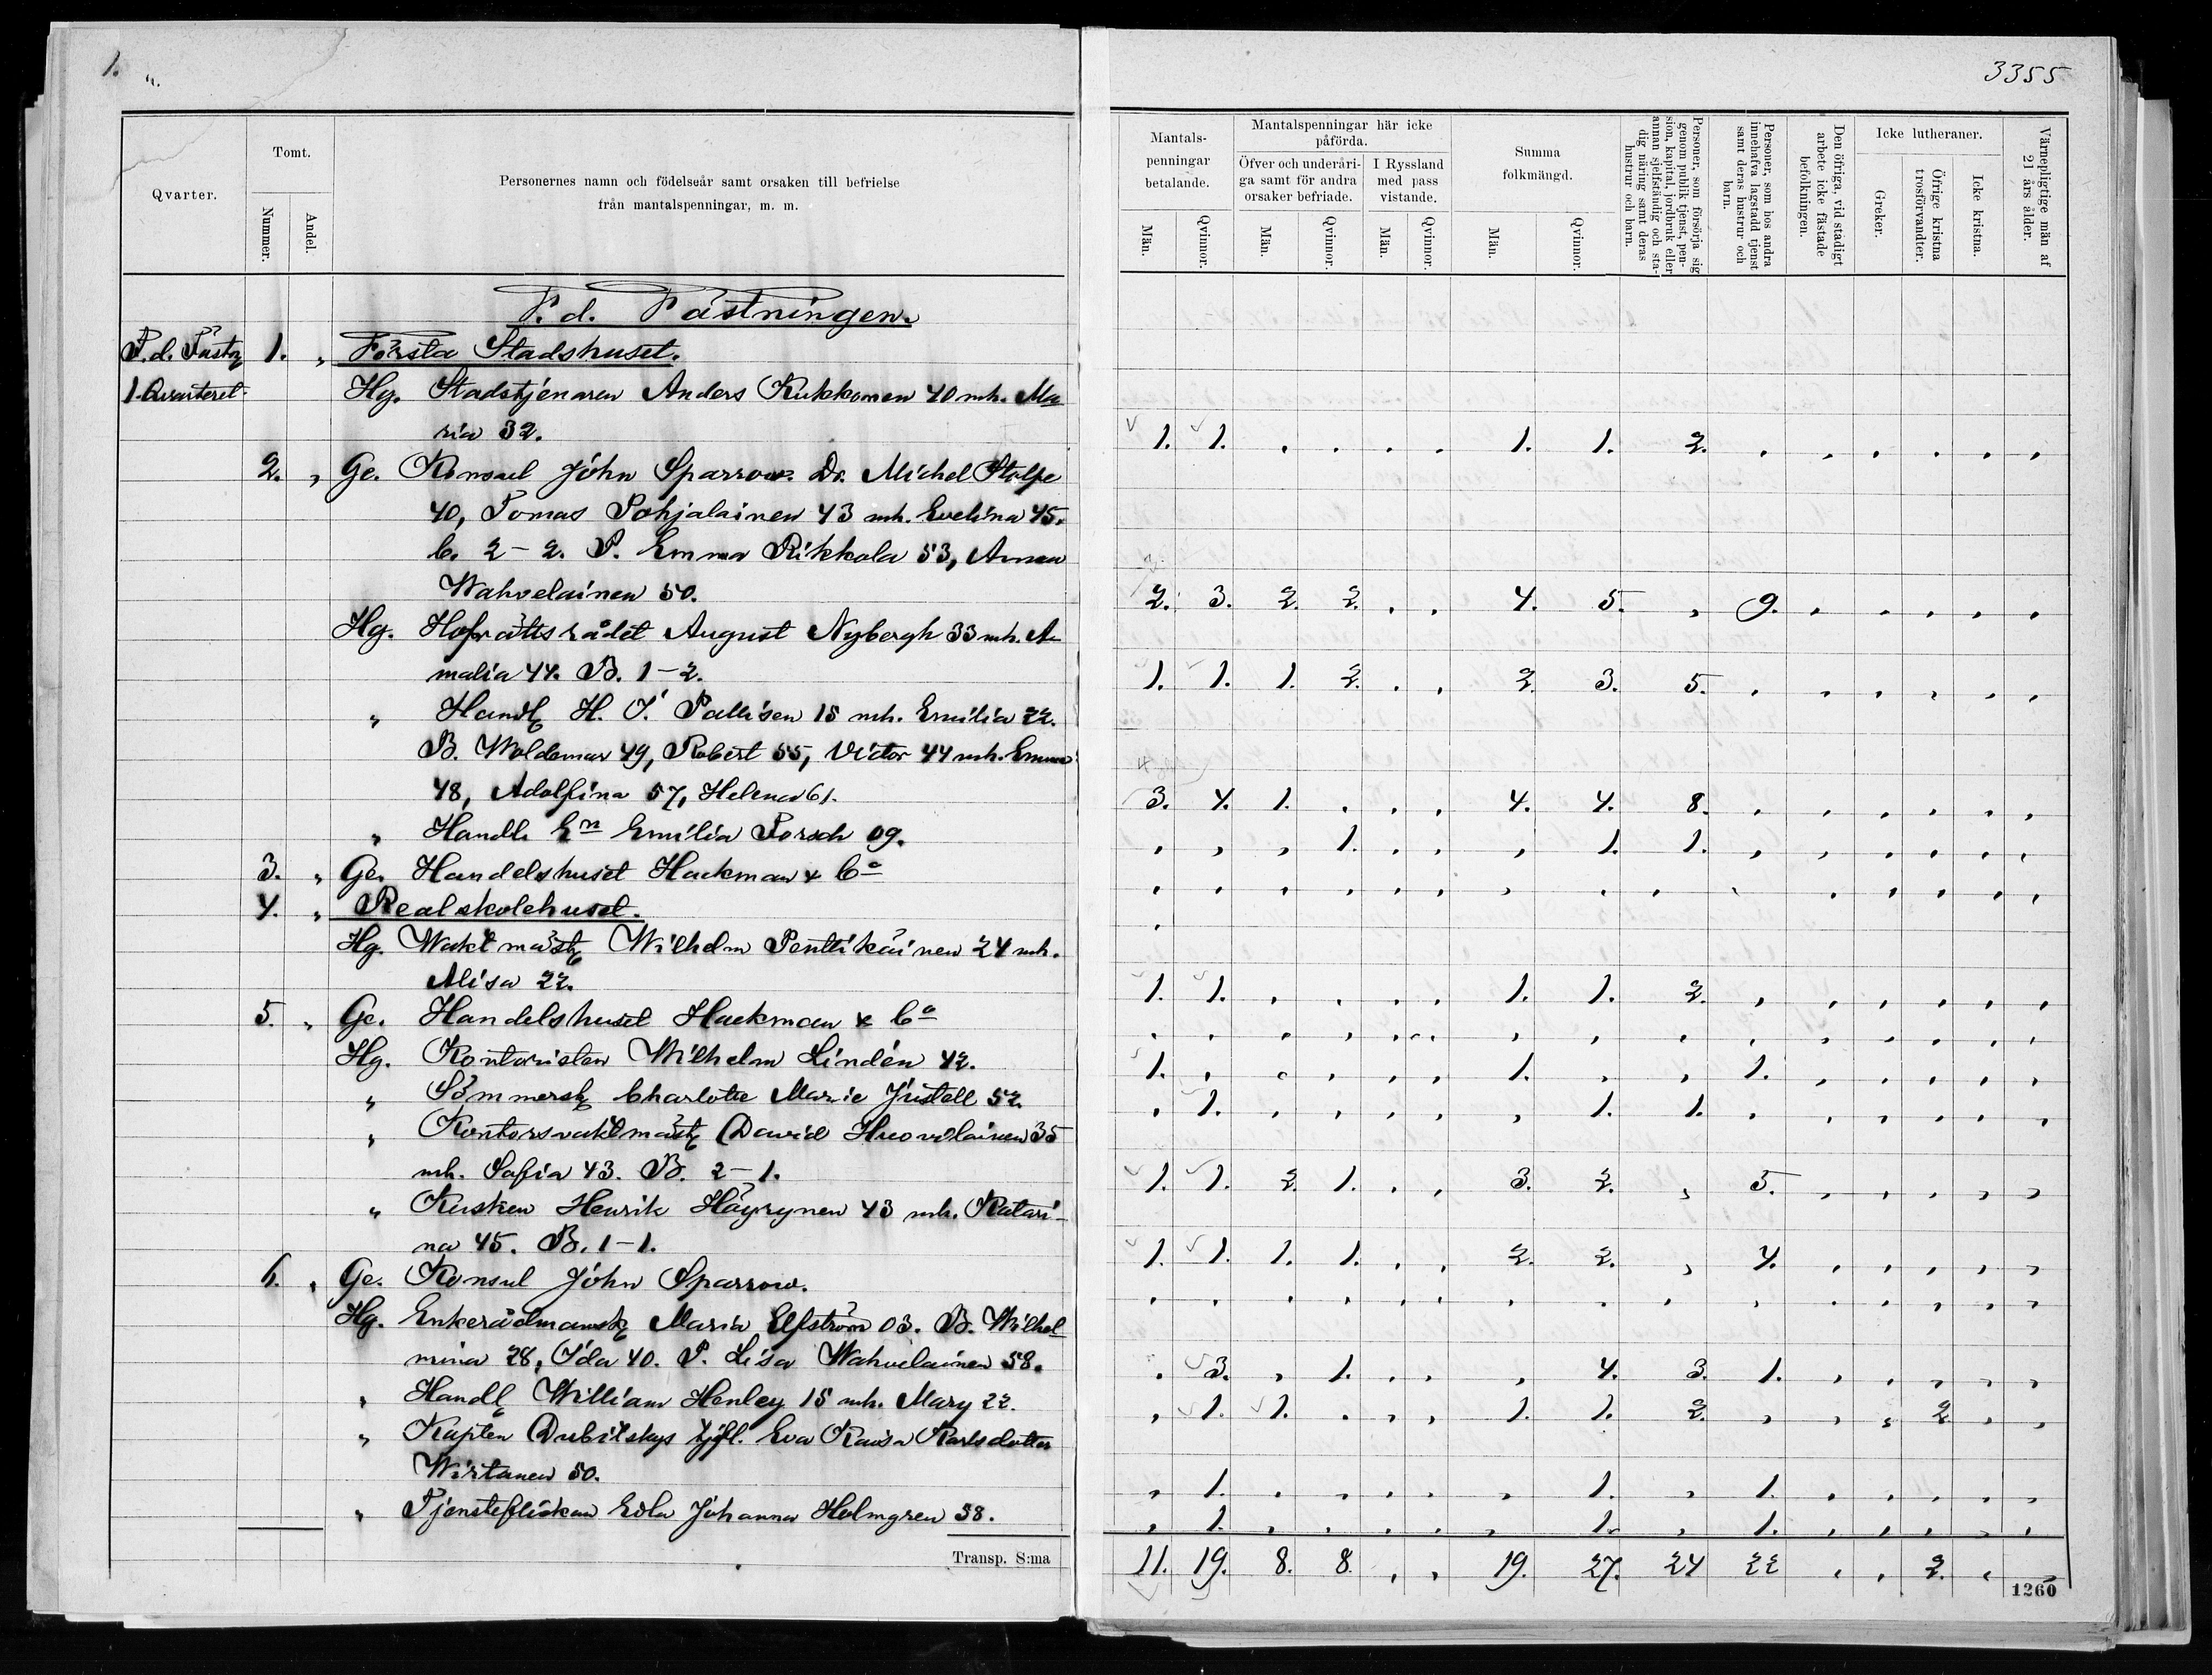 1.
3355
Qvarter.
Tomt.
Nummer.
Andel.
Personernes namn och födelseår samt orsaken till befrielse
från mantalspenningar, m. m.
Mantals-
penningar
betalande.
Män.
Qvinnor.
Mantalspenningar här icke
påförda.
Öfver och underåri-
ga samt för andra
orsaker befriade.
Män.
Qvinnor.
I Ryssland
med pass
vistande.
Män.
Qvinnor.
Summa
folkmängd.
Män.
Qvinnor.
Personer, som försörja sig
genom publik tjenst, pen-
sion, kapital, jordbruk eller
annan sjelfständig och sta-
dig näring samt deras
hustrur och barn.
Personer, som hos andra
innehafva lagstadd tjenst
samt deras hustrur och
barn.
Den öfriga, vid stadigt
arbete icke fästade
befolkningen.
Icke lutheraner.
Greker.
Öfrige kristna
trosförvandter.
Icke kristna.
Värnepligtige män af
21 års ålder.
F. d. Fästningen.
F. d. Fästn 1. " Första Stadshuset.
1. Qvarteret. Hg. Stadstjenaren Anders Kukkonen 40 mh. Ma
ria 32. 1. 1. 1. 1. 2.
2. " Ge. Konsul John Sparrow. Dr. Michel Stolpe
40, Tomas Pohjalainen 43 mh. Evelina 45.
b. 2-2. P. Emma Rikkola 53, Anna
Wahvelainen 50. 2. 3. 2. 2. 4. 5. 9.
Hg. Hofrättsrådet August Nybergh 33 mh. A
malia 44. B. 1-2. 1. 1. 1. 2. 2. 3. 5.
" Handl H. J. Pallisen 15 mh. Emilia 22.
B. Woldemar 49, Robert 55, Victor 44 mh. Emma
48, Adolfina 57, Helena 61. 3. 4. 1. 4. 4. 8.
" Handl. En Emilia Porsch 09. 1. 1. 1.
3. " Ge. Handelshuset Hackman & Co
4. " Realskolehuset.
Hg. Waktmäst Wilhelm Penttikäinen 24 mh.
Alisa 22. 1. 1. 1. 1. 2.
5. " Ge. Handelshuset Hackman & Co
Hg. Kontoristen Wilhelm Lindén 42. 1. 1. 1.
" Sömmersk Charlotte Marie Justell 52. 1. 1. 1.
" Kontorsvaktmäst David Huovilainen 35
mh. Sofia 43. B. 2-1. 1. 1. 2. 1. 3. 2. 5.
" Kusken Henrik Häyrynen 43 mh. Katari-
na 45. B. 1-1. 1. 1. 1. 1. 2. 2. 4.
6. " Ge. Konsul John Sparrow.
Hg. Enkerådmansk Maria Elfström 03. B. Wilhel
mina 28, Ida 40. P. Lisa Wahvelainen 58. 3. 1. 4. 3. 1.
" Handl William Henley 15 mh. Mary 22. 1. 1. 1. 1. 2. 2.
" Kapten Dubitskys tjfl. Eva Kaisa Karlsdotter
Wirtanen 50. 1. 1. 1.
" Tjensteflickan Edla Johanna Holmgren 58. 1. 1. 1.
Transp. S:ma 11. 19. 8. 8. 19. 27. 24 22 2.
1260